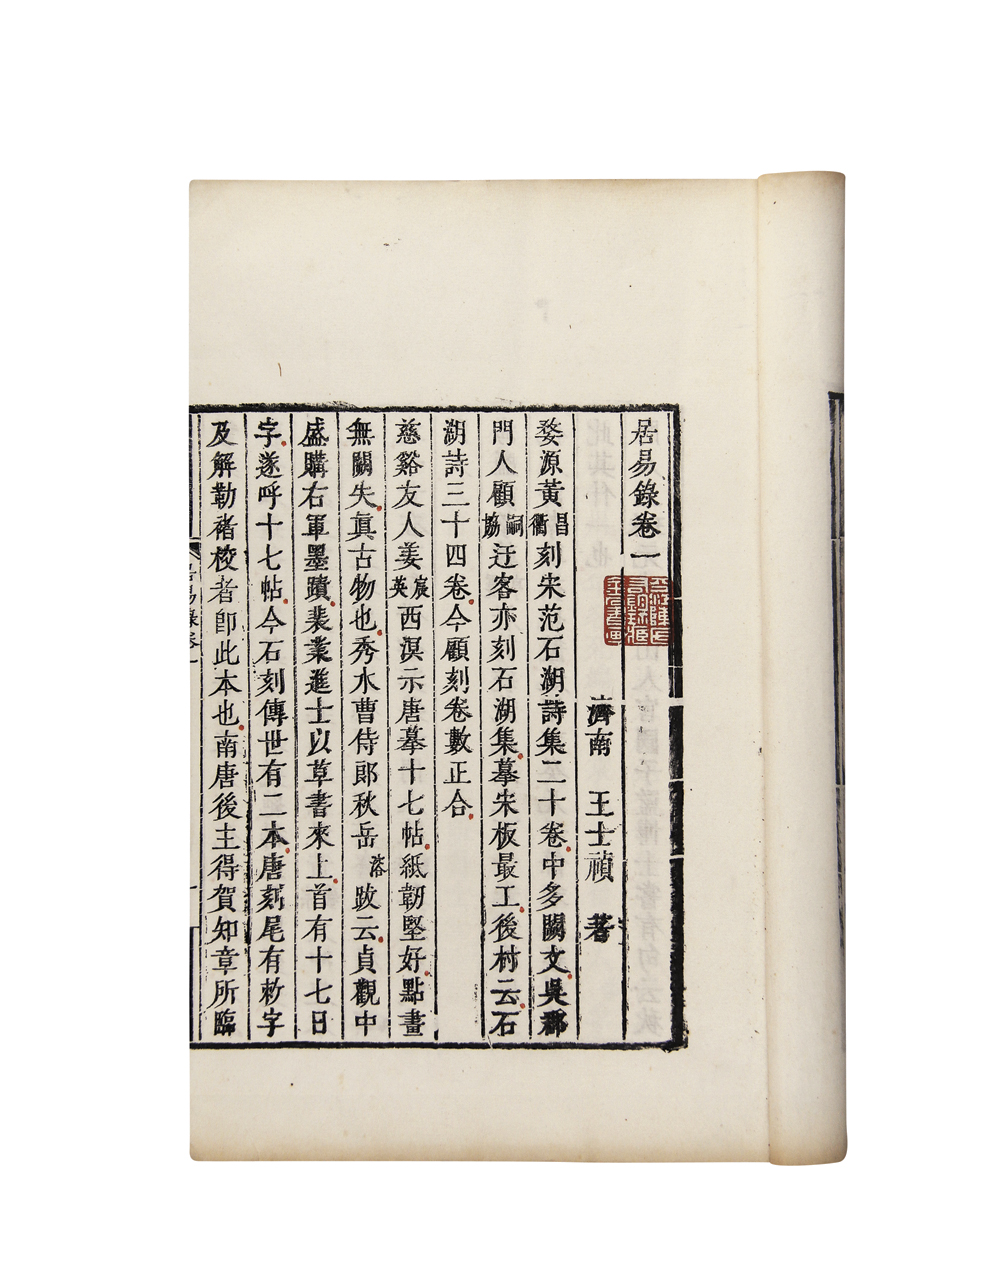 居易錄卷一
濟南 王士禛 著
婺源黃昌衢刻宋范石湖詩集二十卷中多闕文吳郡
門人顧嗣協迂客亦刻石湖集摹宋板最工後村云石
湖詩三十四卷今顧刻卷數正合
慈谿友人姜宸英西溟示唐摹十七帖紙韌堅好點畫
無闕失真古物也秀水曹侍郎秋岳溶跋云貞觀中
盛購右軍墨蹟裴業進士以草書來上首有十七日
字遂呼十七帖今石刻傳世有二本唐刻尾有敕字
及解勒褚校者即此本也南唐後主得賀知章所臨